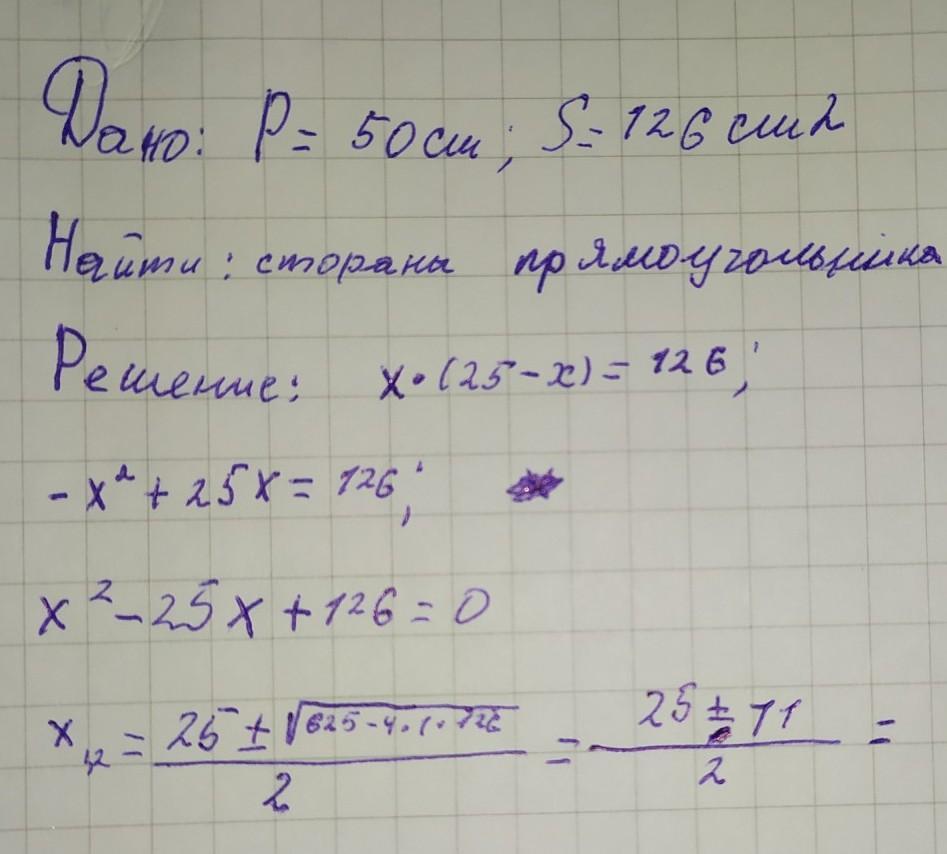 Дано: P = 50см; S = 126 см2
Найти: стораны прямоугольника
Решение: x·(25-x) = 126;
-x² + 25x = 126;
x² - 25x + 126 = 0
x₁,₂ = (25 ± √(625-4·1·126))/2 = (25 ± 11)/2 =